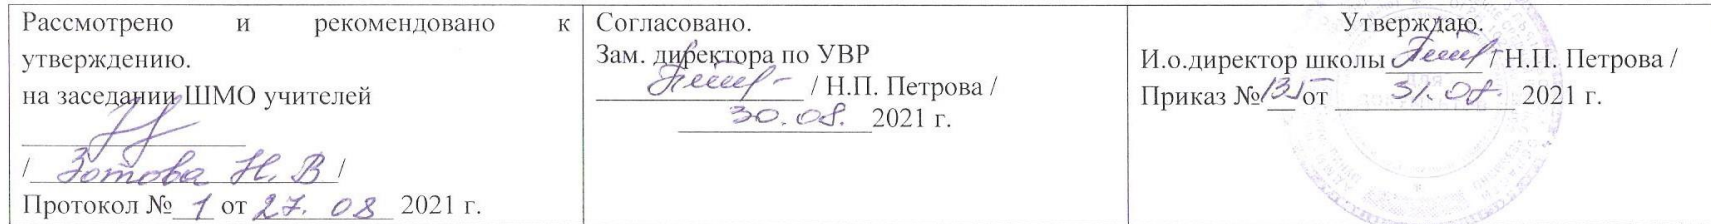 Рассмотрено и рекомендовано к
утверждению.
на заседании ШМО учителей
/ Зотова Н. В /
Протокол № 1 от 27. 08 2021 г.
Согласовано.
Зам. директора по УВР
/ Н.П. Петрова /
30.08. 2021 г.
Утверждаю.
И.о.директор школы / Н.П. Петрова /
Приказ № 135 от 31.08. 2021 г.